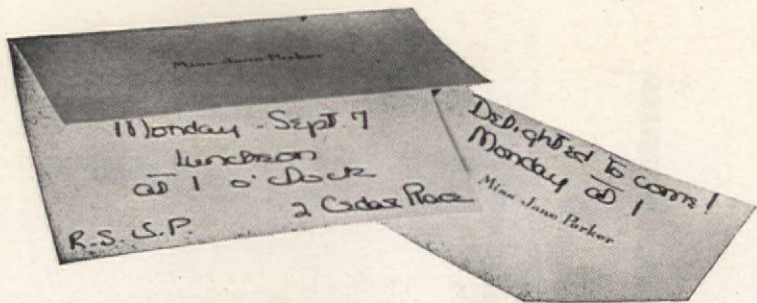 Miss Jane Parker
Monday - Sept. 7
Luncheon
at 1 o'clock
2 Cedar Place
R.S.V.P.
Delighted to come!
Monday at 1
Miss Jane Parker